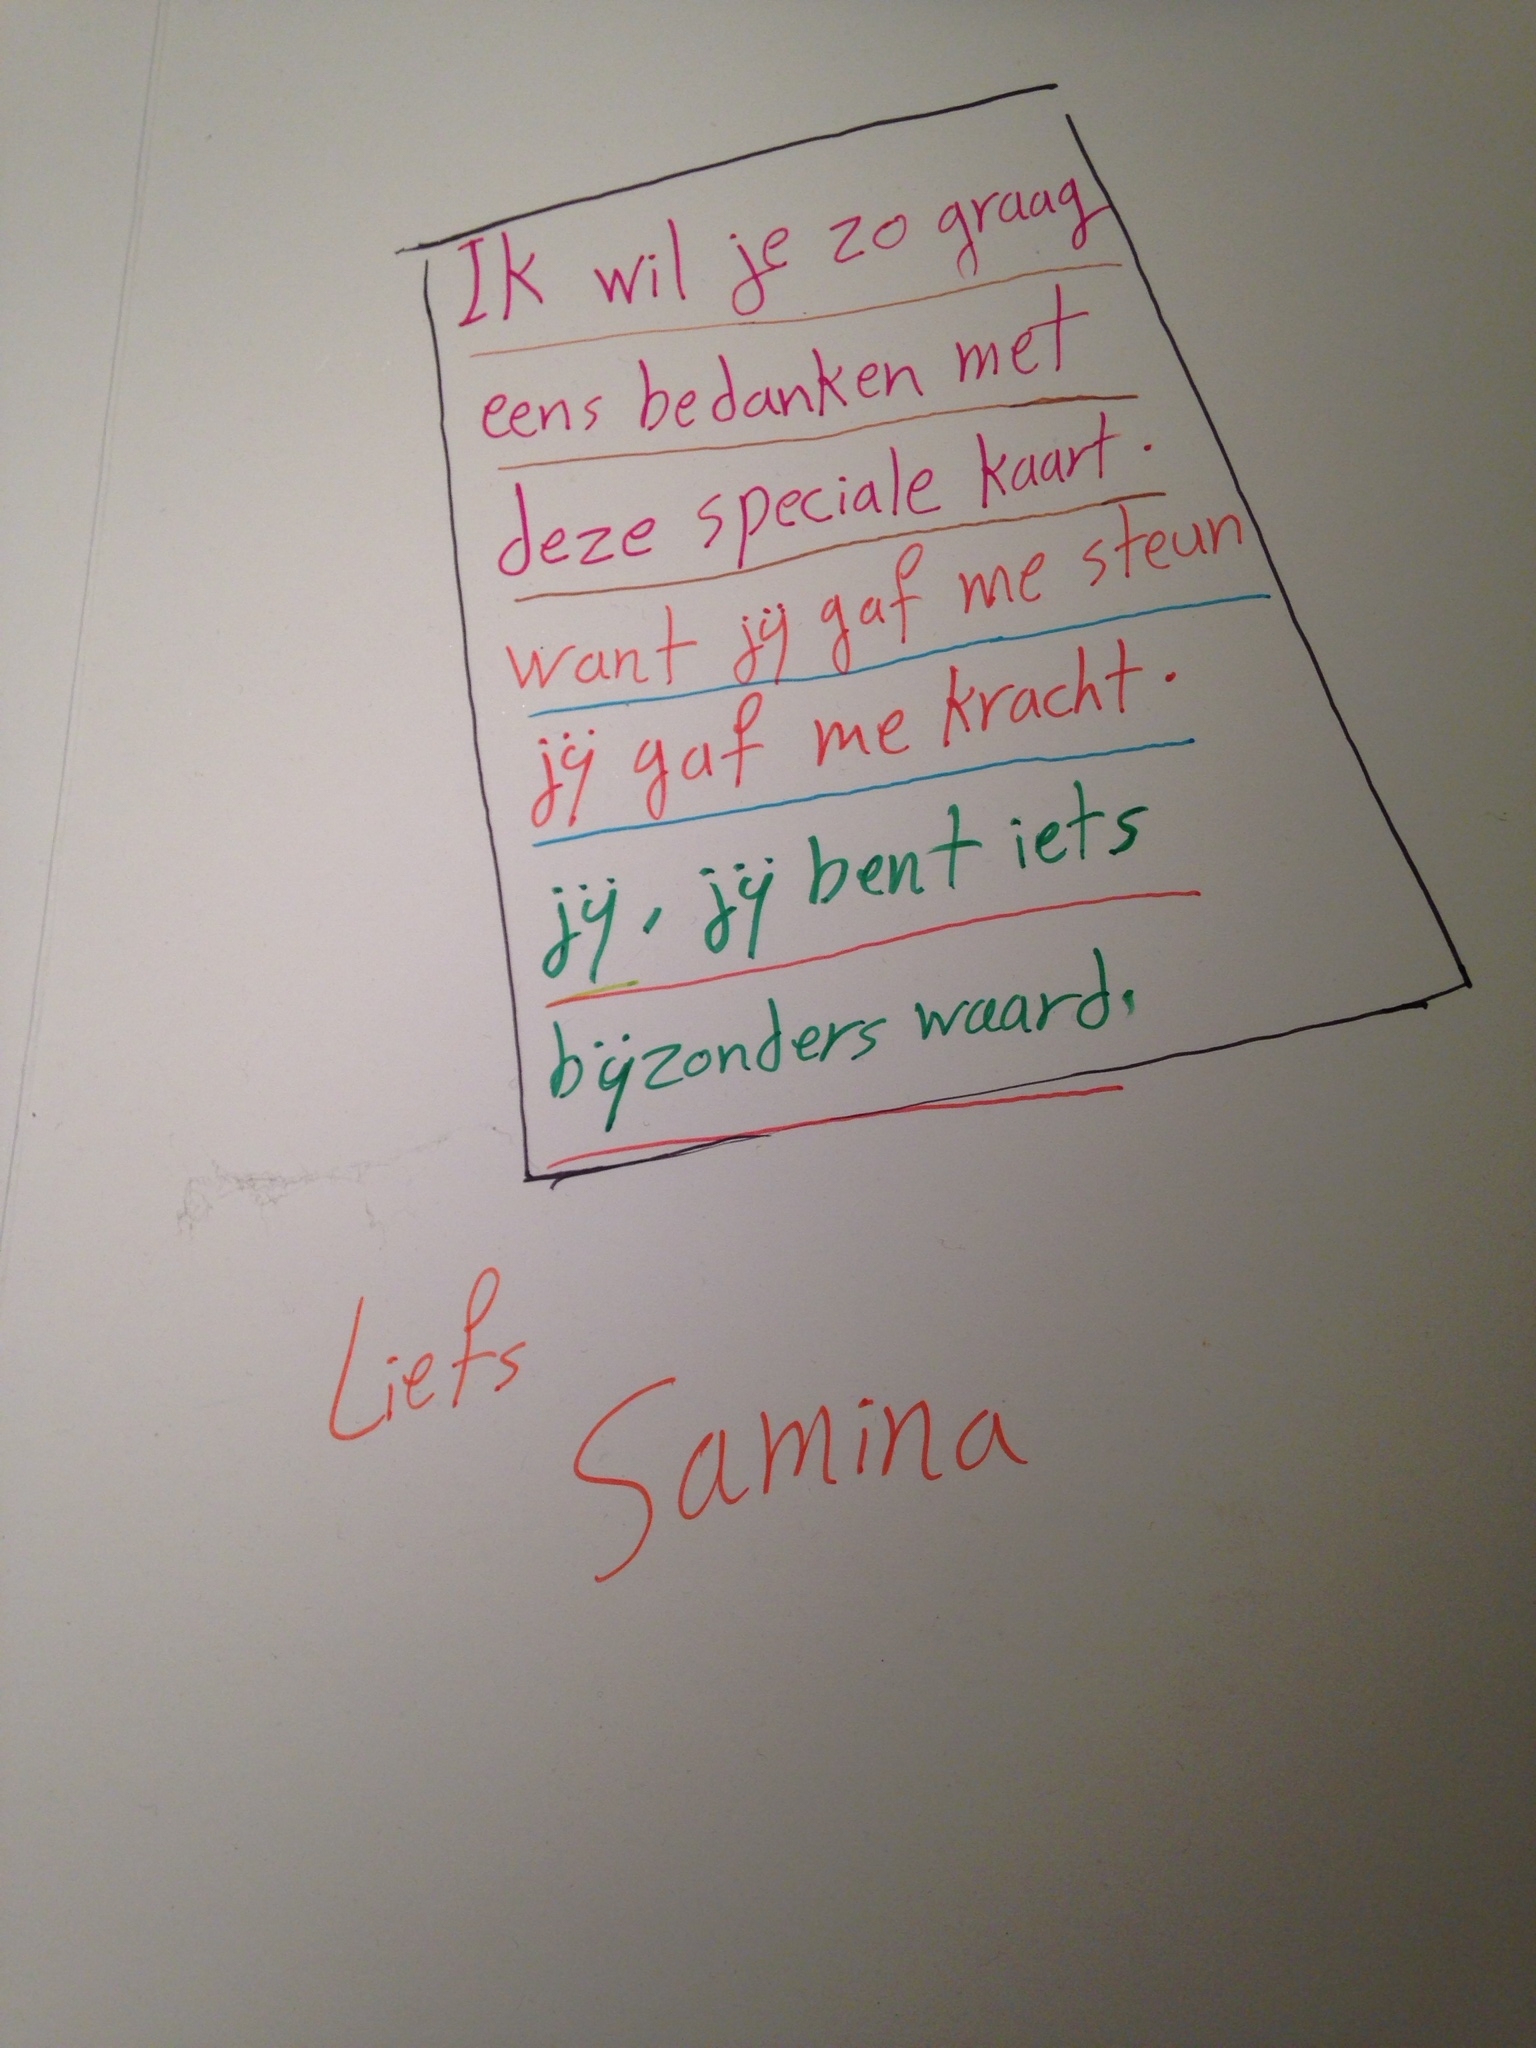 Ik wil je zo graag
eens bedanken met
deze speciale kaart.
want jij gaf me steun
jij gaf me kracht.
jij, jij bent iets
bijzonders waard.
Liefs
Samina